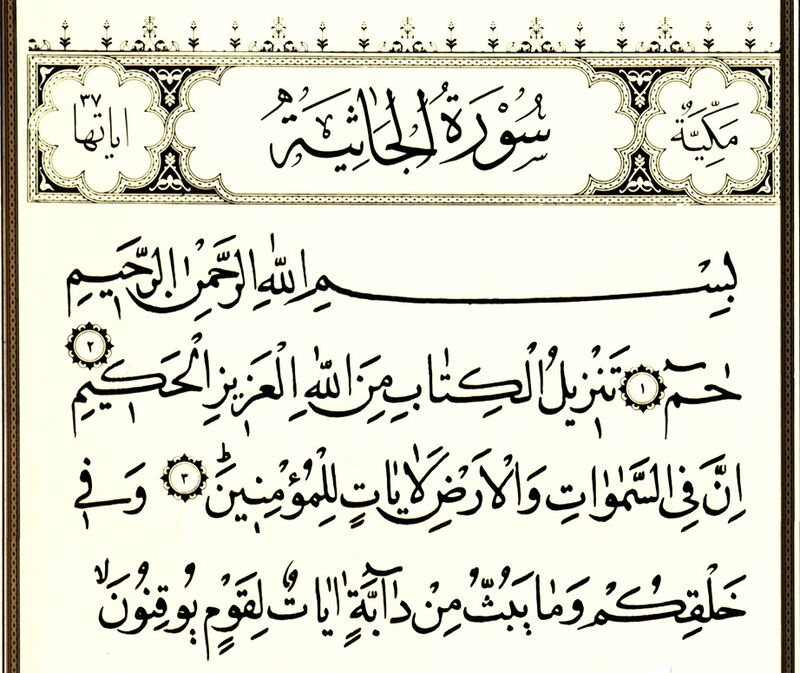 مَكِّيَّةٌ
سُوْرَةُ الْجَاثِيَةِ
اٰيَاتُهَا ٣٧
بِسْمِ اللّٰهِ الرَّحْمٰنِ الرَّحٖيمِ
حٰمٓ ١ تَنْزٖيلُ الْكِتَابِ مِنَ اللّٰهِ الْعَزٖيزِ الْحَكٖيمِ ٢
اِنَّ فِى السَّمٰوَاتِ وَالْاَرْضِ لَاٰيَاتٍ لِلْمُؤْمِنٖينَؕ ٣ وَفٖى
خَلْقِكُمْ وَمَا يَبُثُّ مِنْ دَٓابَّةٍ اٰيَاتٌ لِقَوْمٍ يُوقِنُونَۙ